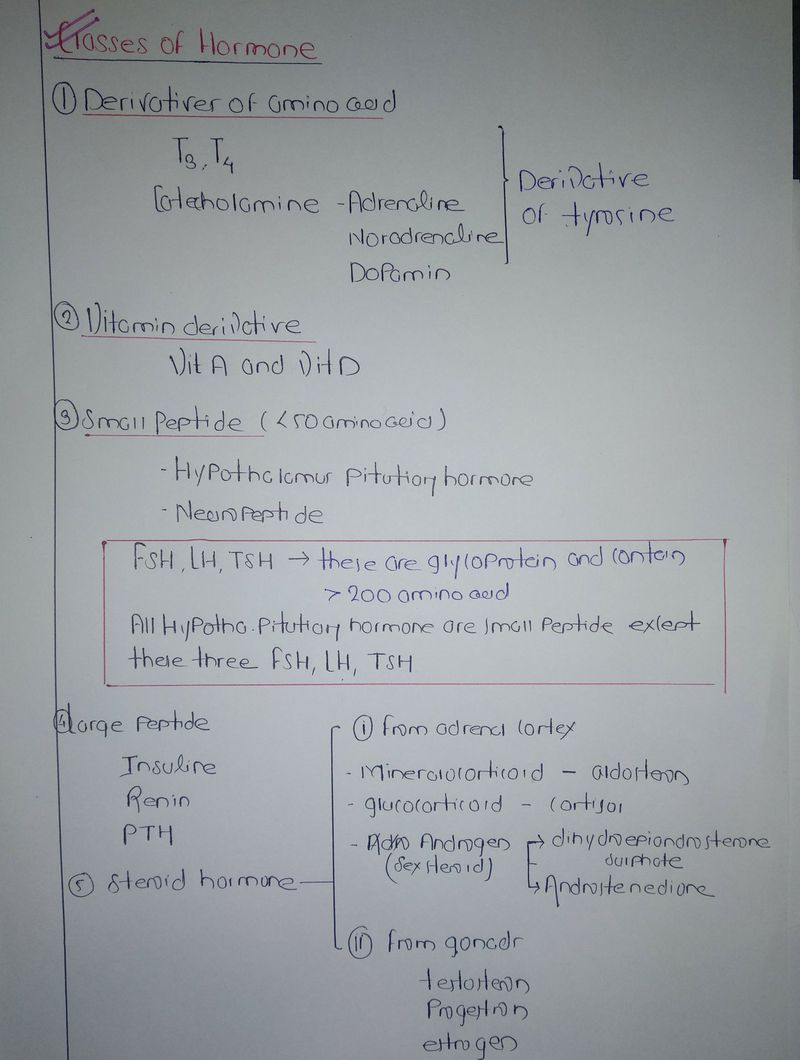 Classes of Hormone
① Derivatives of amino acid
T3, T4
Catecholamine - Adrenaline
Noradrenaline
Dopamin
Derivative
of tyrosine
② Vitamin derivative
Vit A and Vit D
③ Small Peptide (<50 amino acid)
- Hypothalamus Pitutiory hormone
- Neuropeptide
FSH, LH, TSH → these are glycoprotein and contain
> 200 amino acid
All Hypotha. Pitutiory hormone are small Peptide except
these three FSH, LH, TSH
④ Large Peptide
Insuline
Renin
PTH
⑤ Steroid hormone
(i) from adrenal cortex
- Mineralocorticoid - aldosteron
- glucocorticoid - cortisol
- Androgen → dihydroepiandrosterone
(Sex steroid) sulphate
↳ Androstenedione
(ii) from gonads
testosteron
Progestron
estrogen